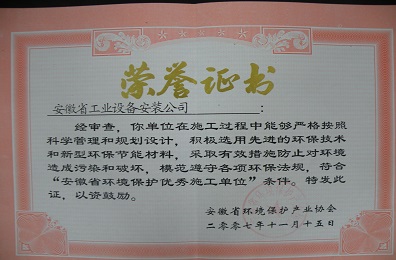 荣誉证书
安徽省工业设备安装公司：
经审查，你单位在施工过程中能够严格按照
科学管理和规划设计，积极选用先进的环保技术
和新型环保节能材料，采取有效措施防止对环境
造成污染和破坏，模范遵守各项环保法规，符合
“安徽省环境保护优秀施工单位”条件。特发此
证，以资鼓励。
安徽省环境保护产业协会
二〇〇七年十一月十五日